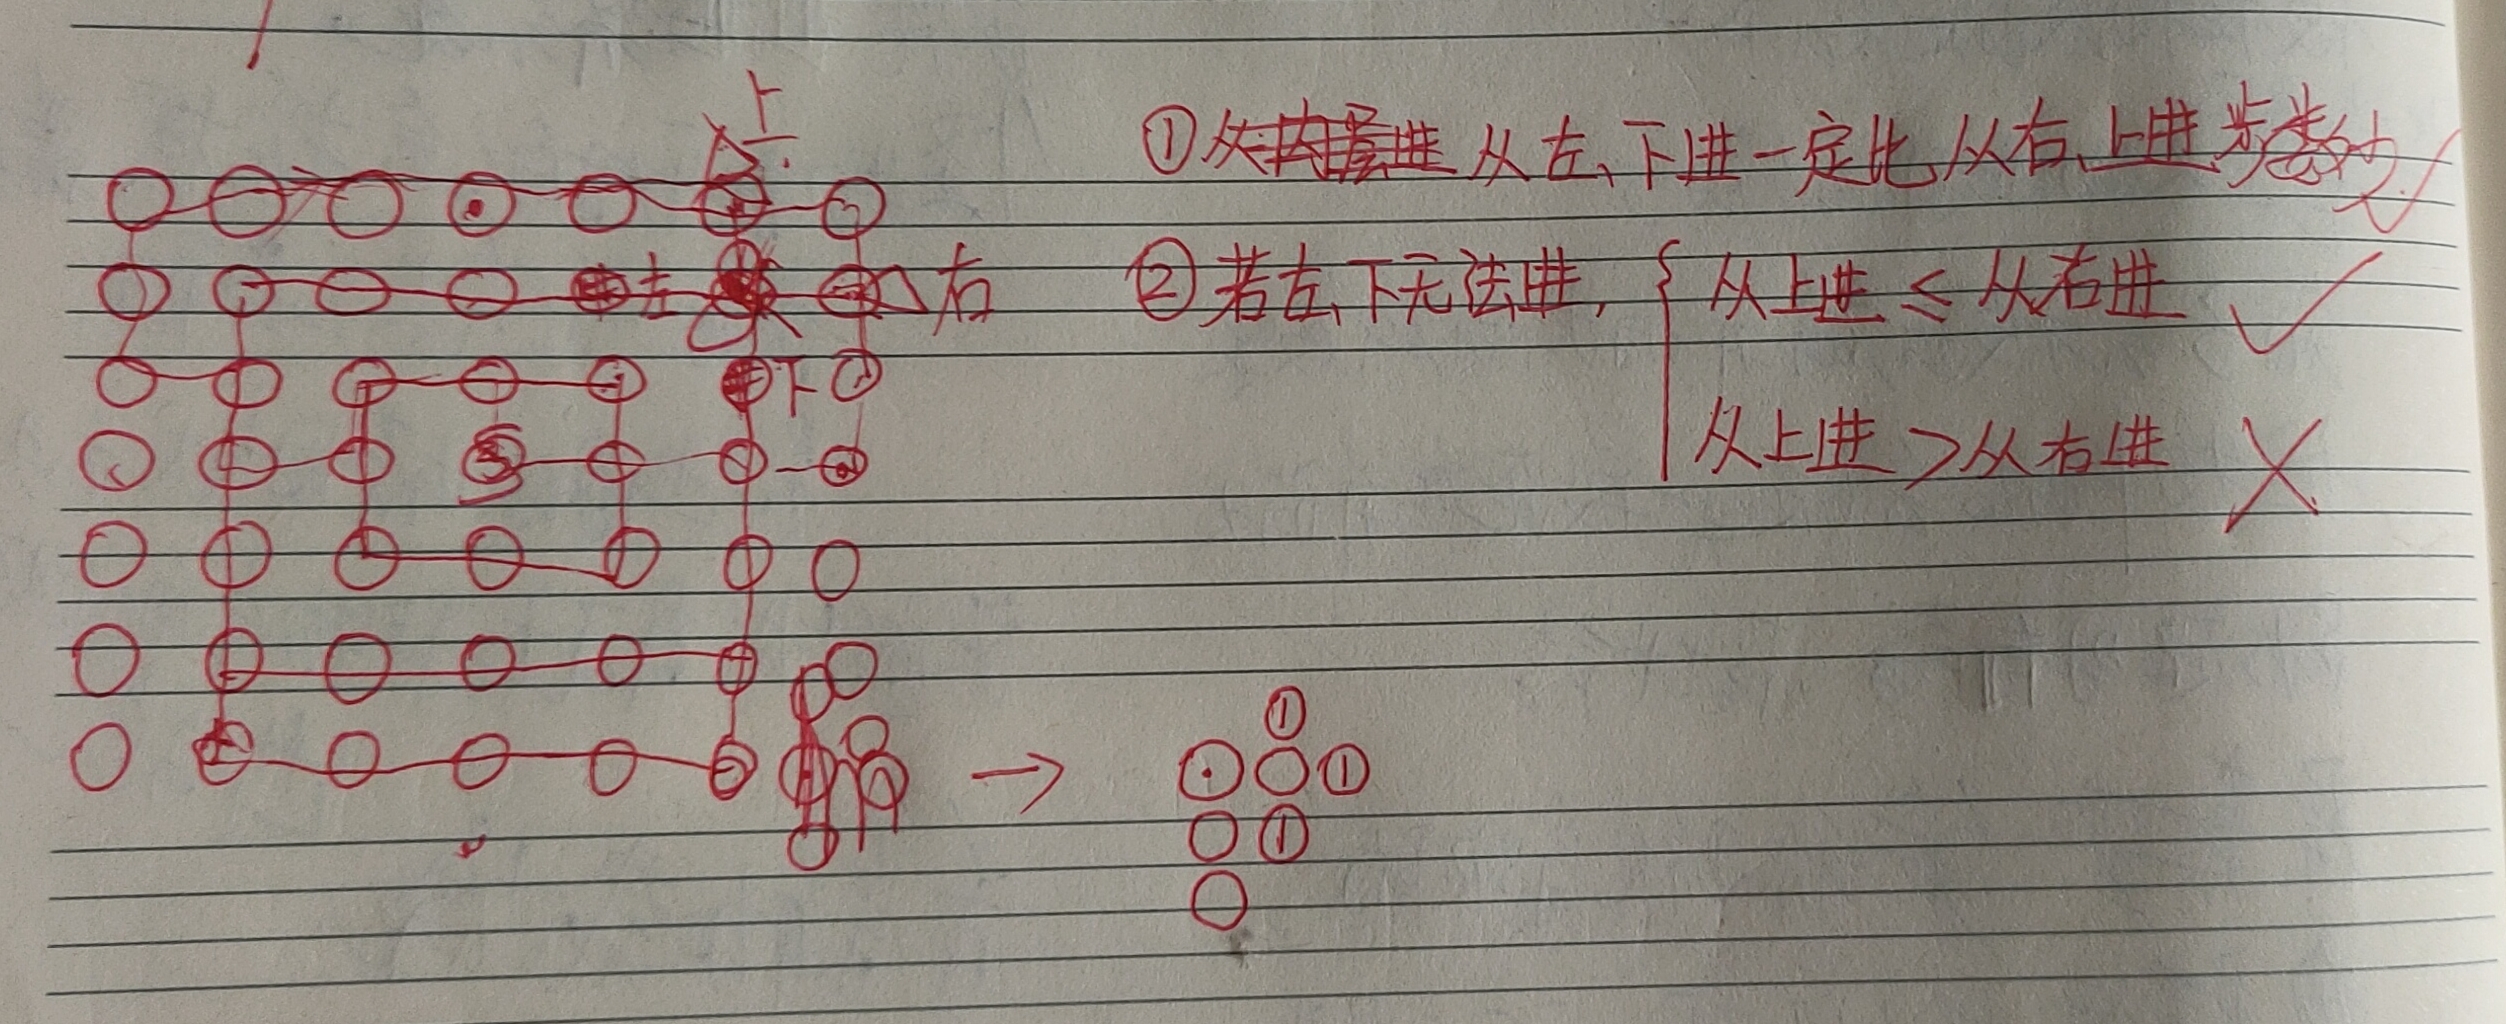 上
①从左、下进一定比从右、上进步数少
左
右
②若左、下无法进,
从上进 ≤ 从右进
下
S
从上进 > 从右进
①
①
①